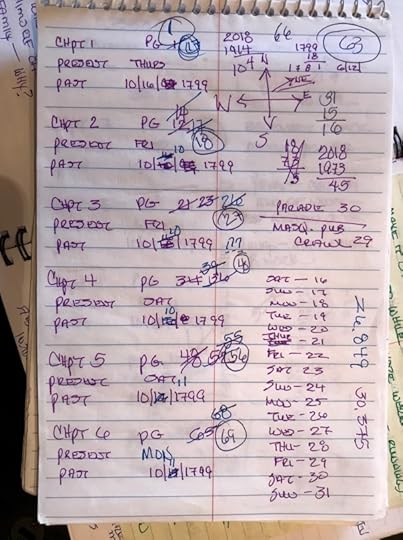 1 66 63
CHPT 1 PG 2018 1799
1914 18
PRESENT THURS 104 N 1781 6/12/
PAST 10/16/ 1799
W E 31
15
16
CHPT 2 PG 12 17 14 S
PRESENT FRI 18 18 2018
PAST 10/ 10 /1799 73 1973
45
CHPT 3 PG 21 23 26 PARADE 30
PRESENT FRI 27 MASQ. PUB
PAST 10/ 10 /1799 CRAWL 29
CHPT 4 PG SAT - 16
PRESENT SAT SUN - 17
PAST 10/ 10 /1799 MON - 18
TUE - 19
WED - 20
CHPT 5 PG 48 55 56 THUR - 21
PRESENT SAT FRI - 22
PAST 10/ 11 /1799 SAT 23
SUN - 24
MON - 25
CHPT 6 PG 65 68 69 TUE - 26
PRESENT MON WED - 27
PAST 10/ /1799 THU - 28
FRI - 29
SAT - 30
SUN - 31
26,849
30,345